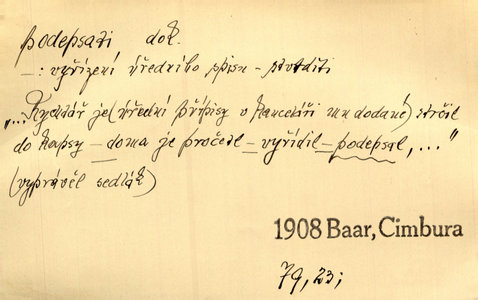 podepsati, dok.
—: vyřízení úředního spisu - stvrditi
"...Rychtář je (úřední přípisy v kanceláři mu dodané) strčil
do kapsy – doma je pročetl – vyřídil – podepsal, ..."
(vyprávěl sedlák)
1908 Baar, Cimbura
79, 23;